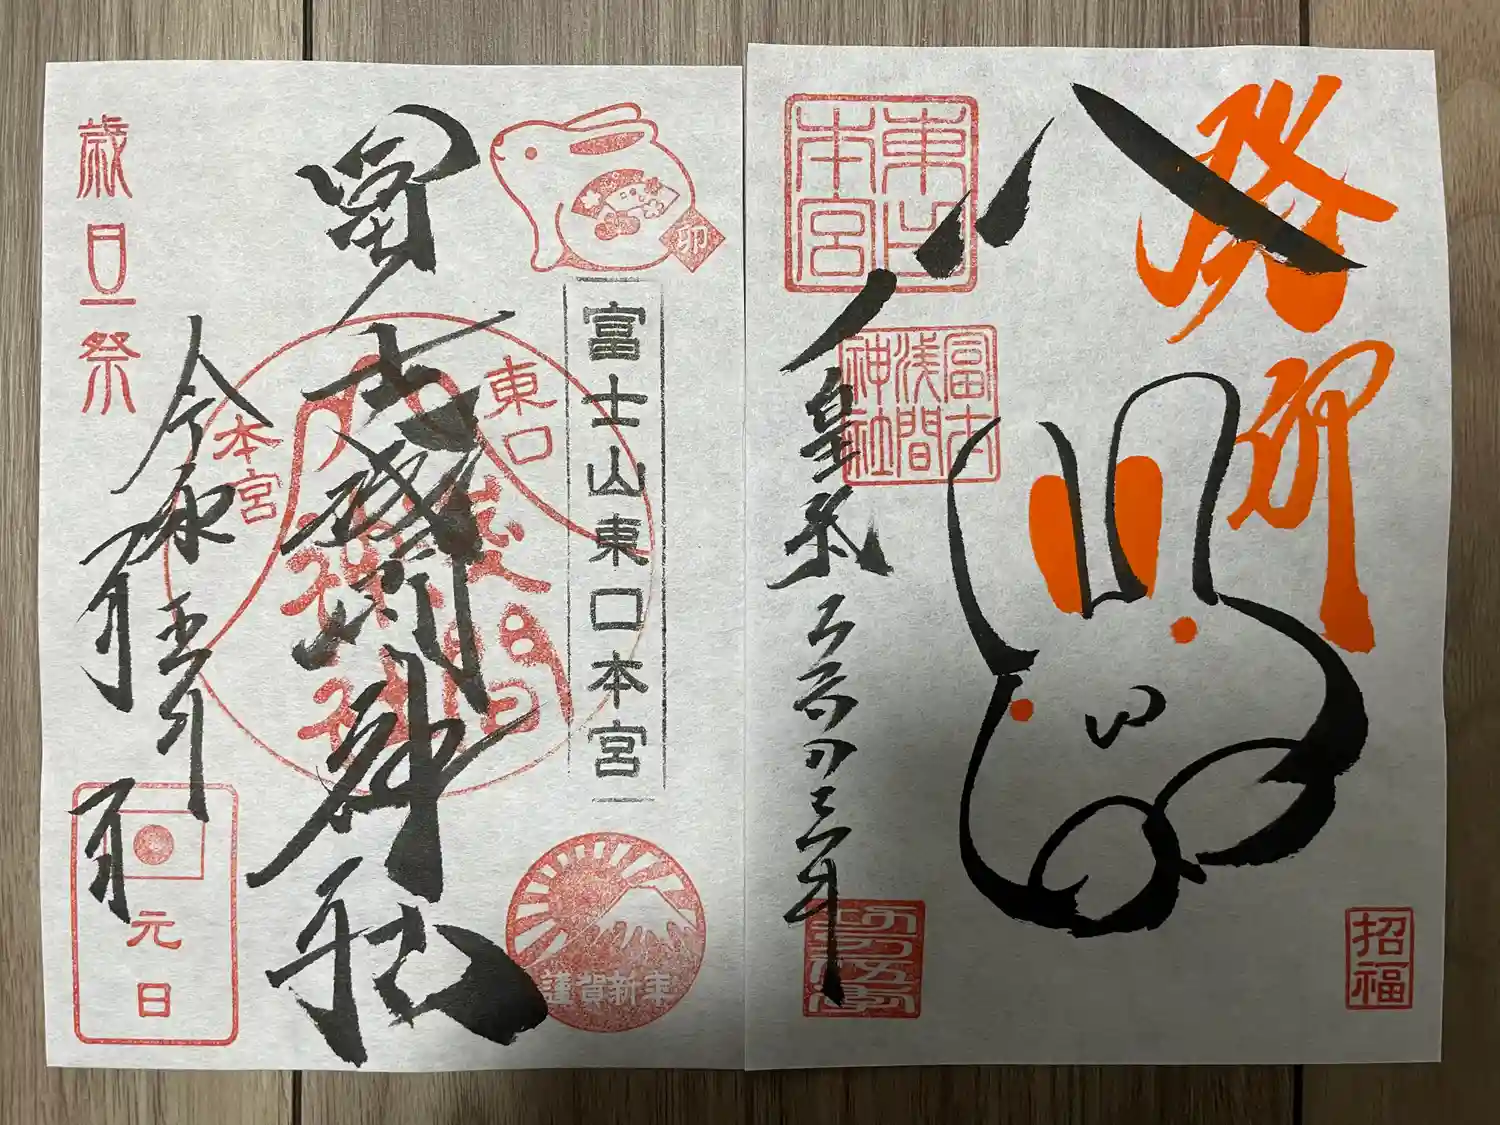 歳旦祭
卯
富士山東口本宮
冨士浅間神社
東口
本宮
令和五年
一月
一日
元日
謹賀新年
癸卯
東口本宮
冨士浅間神社
皇紀二六八三年
招福